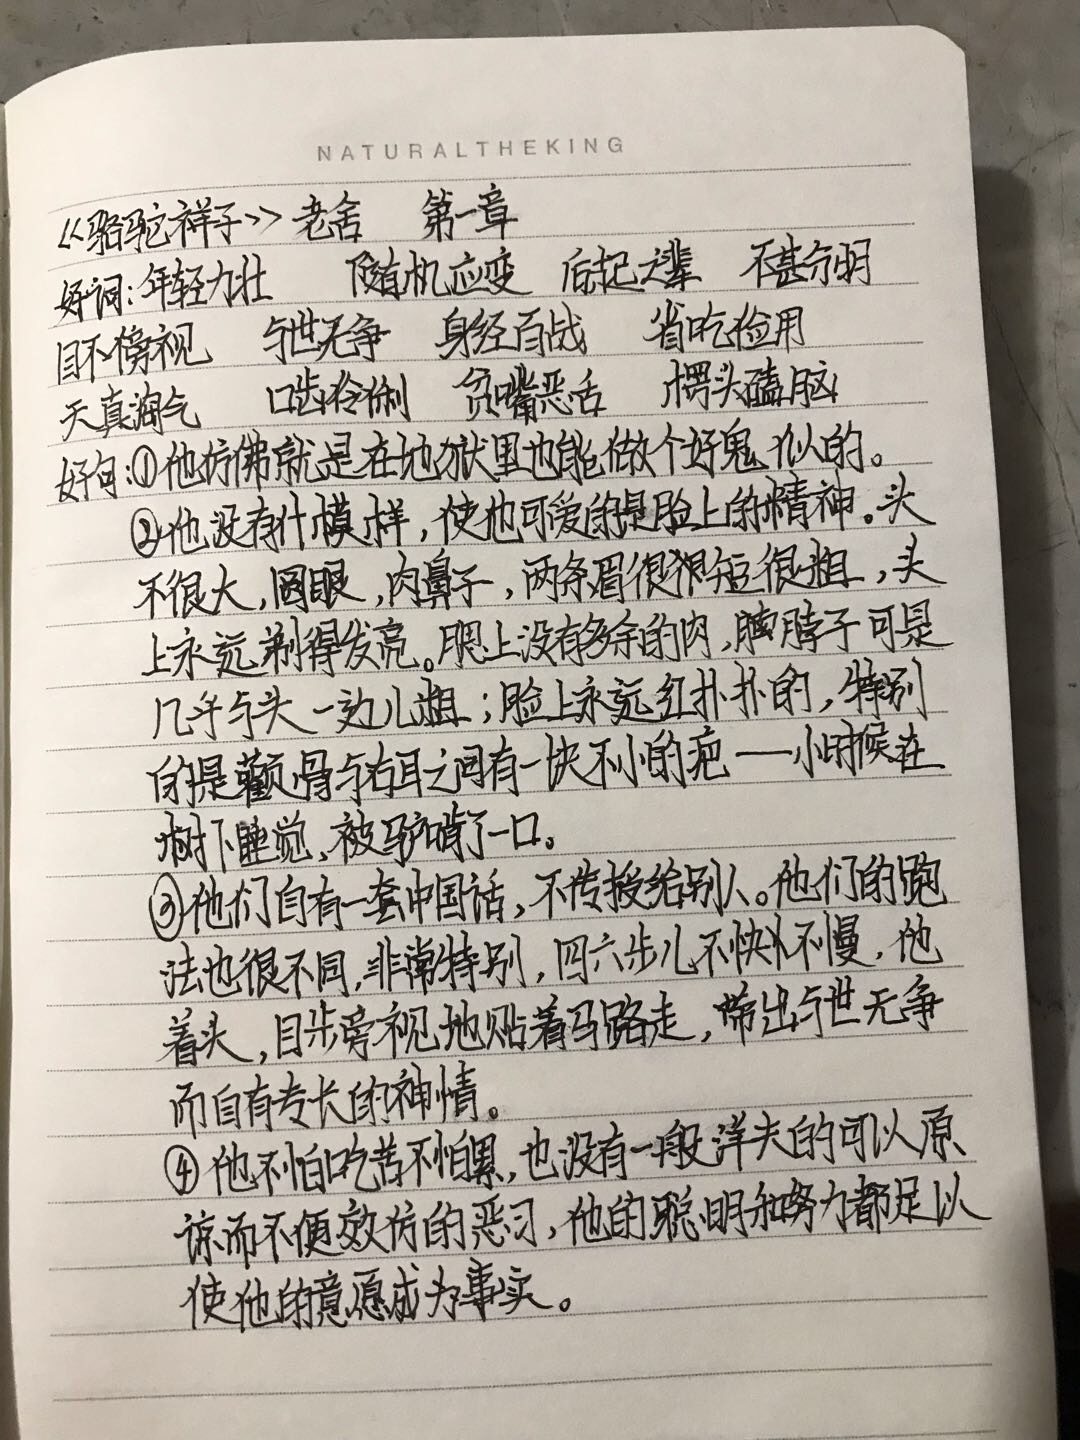 NATURALTHEKING
《骆驼祥子》老舍 第一章
好词:年轻力壮 随机应变 后起之辈 不甚分明
目不榜视 与世无争 身经百战 省吃俭用
天真淘气 口齿伶俐 贫嘴恶舌 楞头磕脑
好句:①他仿佛就是在地狱里也能做个好鬼似的。
②他没有什模样,使他可爱的是脸上的精神。头
不很大,圆眼,肉鼻子,两条眉很很短很粗,头
上永远剃得发亮。腮上没有多余的肉,脖子可是
几乎与头一边儿粗;脸上永远红扑扑的,特别
的是颧骨与右耳之间有一块不小的疤——小时候在
树下睡觉,被驴啃了一口。
③他们自有一套中国话,不传授给别人。他们的跑
法也很不同,非常特别,四六步儿不快不慢,他
着头,目步旁视地贴着马路走,带出与世无争
而自有专长的神情。
④他不怕吃苦不怕累,也没有一般洋夫的可以原
谅而不便效仿的恶习,他的聪明和努力都足以
使他的意愿成为事实。